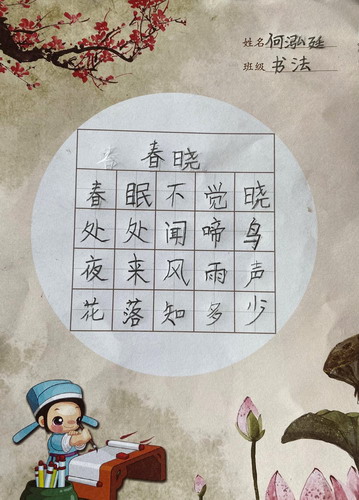 姓名 何泓廷
班级 书法
春晓
春眠不觉晓
处处闻啼鸟
夜来风雨声
花落知多少